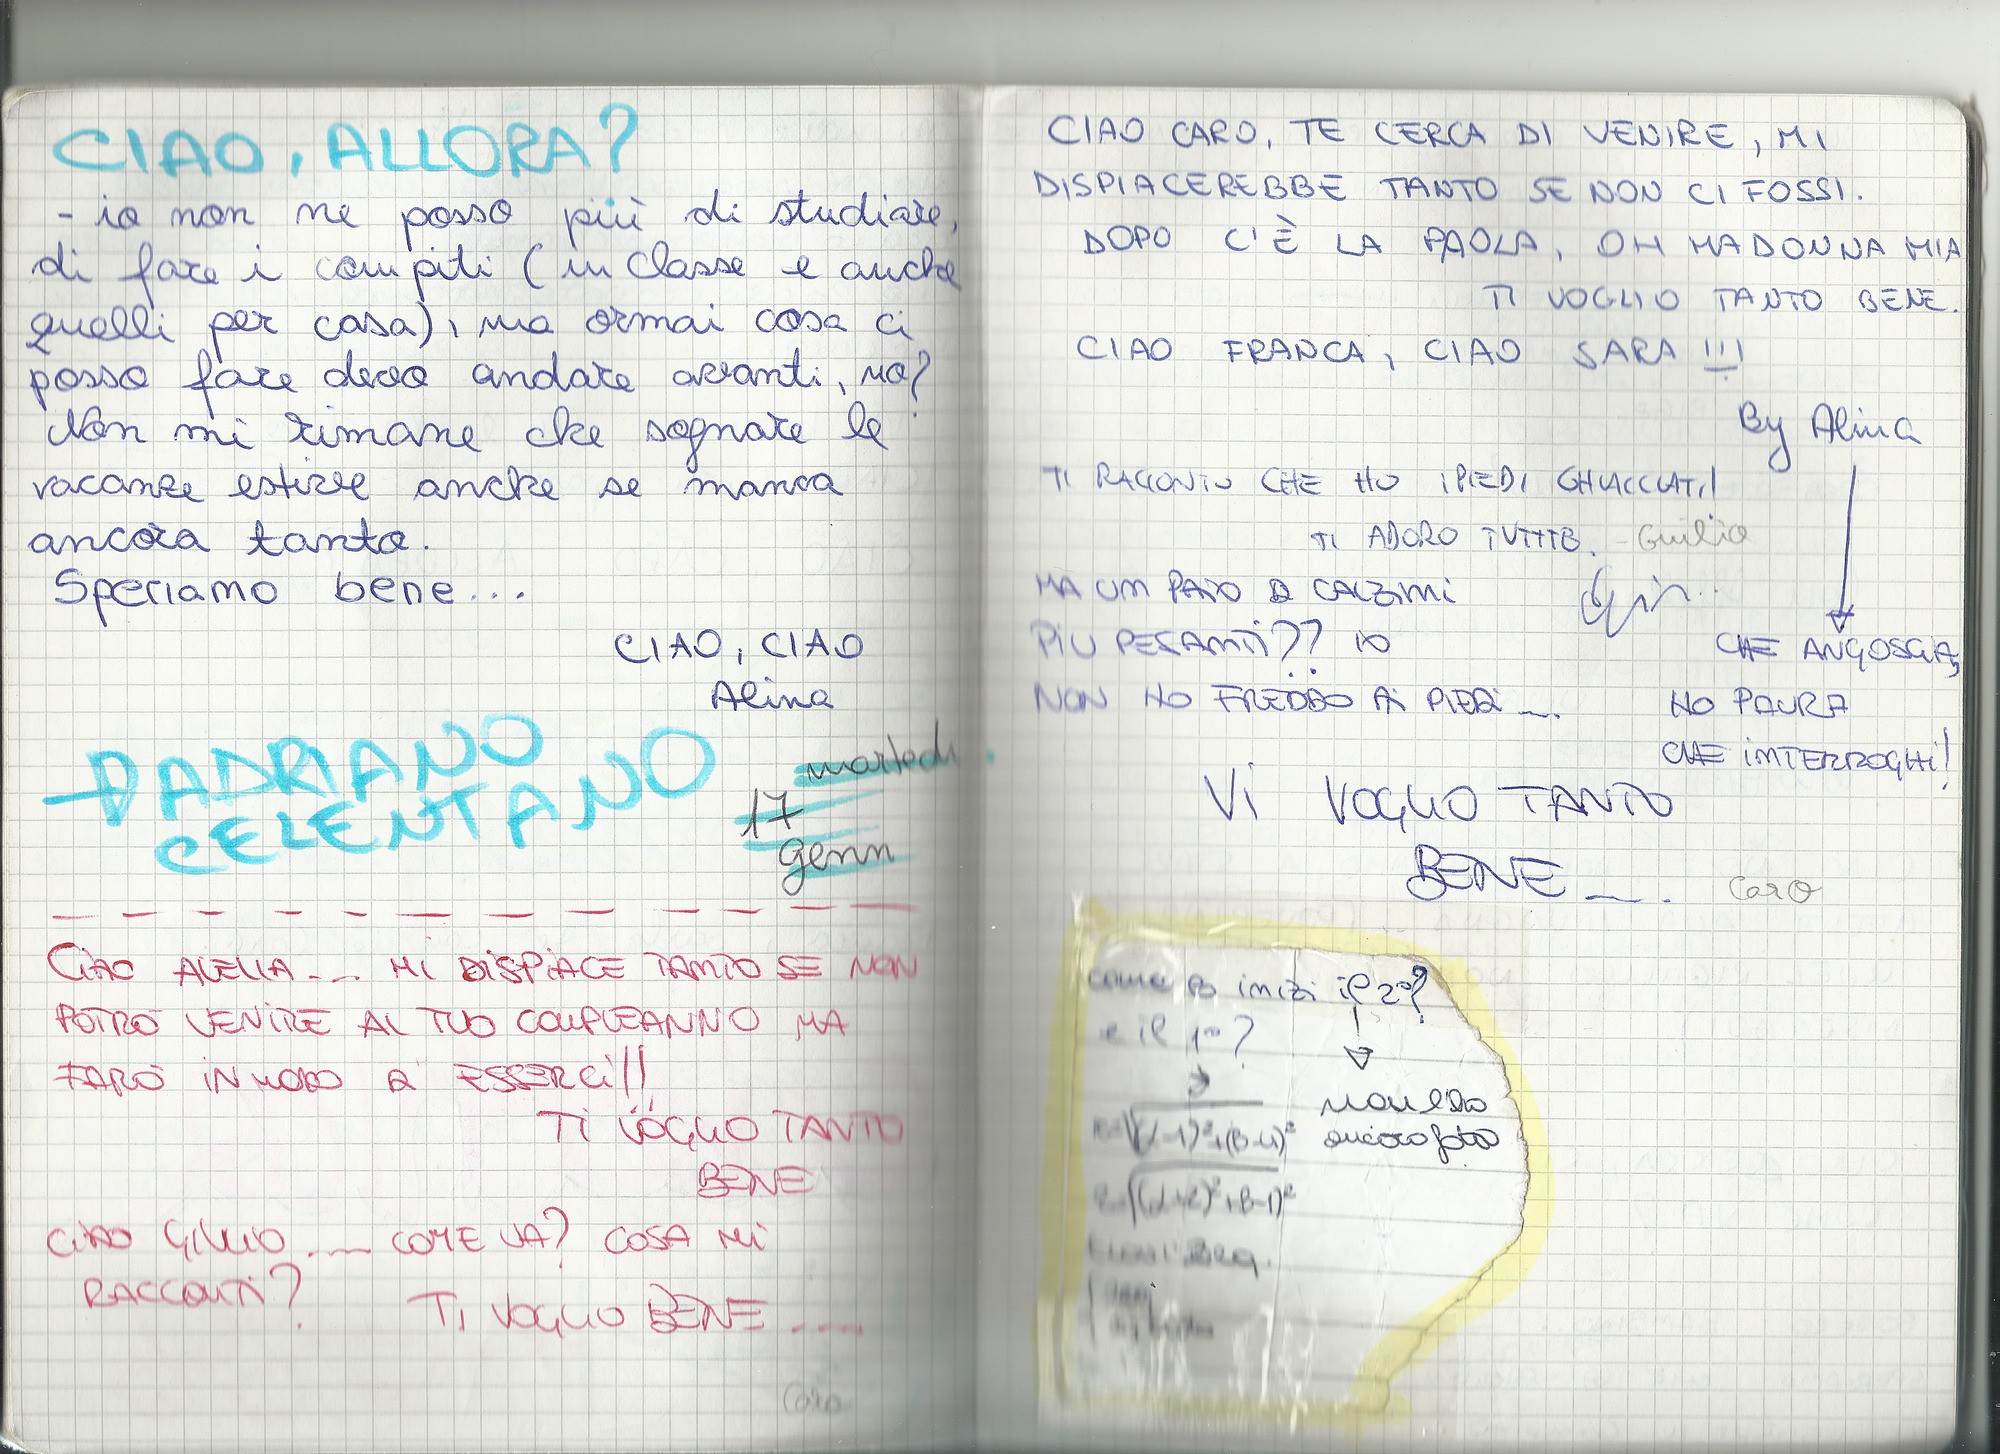 CIAO, ALLORA?
- io non ne posso più di studiare,
di fare i compiti (in classe e anche
quelli per casa), ma ormai cosa ci
posso fare devo andare avanti, no?
Non mi rimane che sognare le
vacanze estive anche se manca
ancora tanto.
Speriamo bene...
CIAO, CIAO
Alina
ADRIANO
CELENTANO
martedì
17
genn
CIAO ALELLA.... MI DISPIACE TANTO SE NON
POTRÒ VENIRE AL TUO COMPLEANNO MA
FARÒ IN MODO DI ESSERCI!!
TI VOGLIO TANTO
BENE
CIAO GIULIO .... COME VA? COSA MI
RACCONTI?
TI VOGLIO BENE ....
Caro
CIAO CARO, TE CERCA DI VENIRE, MI
DISPIACEREBBE TANTO SE NON CI FOSSI.
DOPO C'È LA PAOLA, OH MADONNA MIA
TI VOGLIO TANTO BENE.
CIAO FRANCA, CIAO SARA !!!
By Alina
TI RACCONTO CHE HO I PIEDI GHIACCIATI!
TI ADORO TUTTE. - Giulia
MA UN PAIO DI CALZINI
PIÙ PESANTI?? IO
NON HO FREDDO AI PIEDI ....
CHE ANGOSCIA,
HO PAURA
CHE INTERROGHI!
VI VOGLIO TANTO
BENE .... Caro
come inizi il 2°?
e il 1°?
non l'ho
ancora fatto